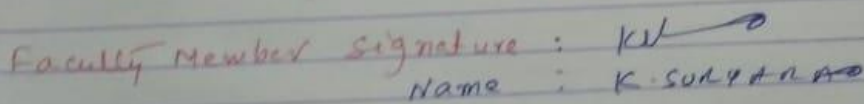 Faculty Member Signature :
Name : K. SURYA RAO